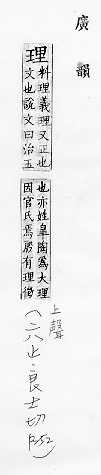 廣韻
理
料理義理又正也
文也說文曰治玉
也亦姓皐陶爲大理
因官氏焉殷有理徵
上聲
(六止·良士切
P.252)